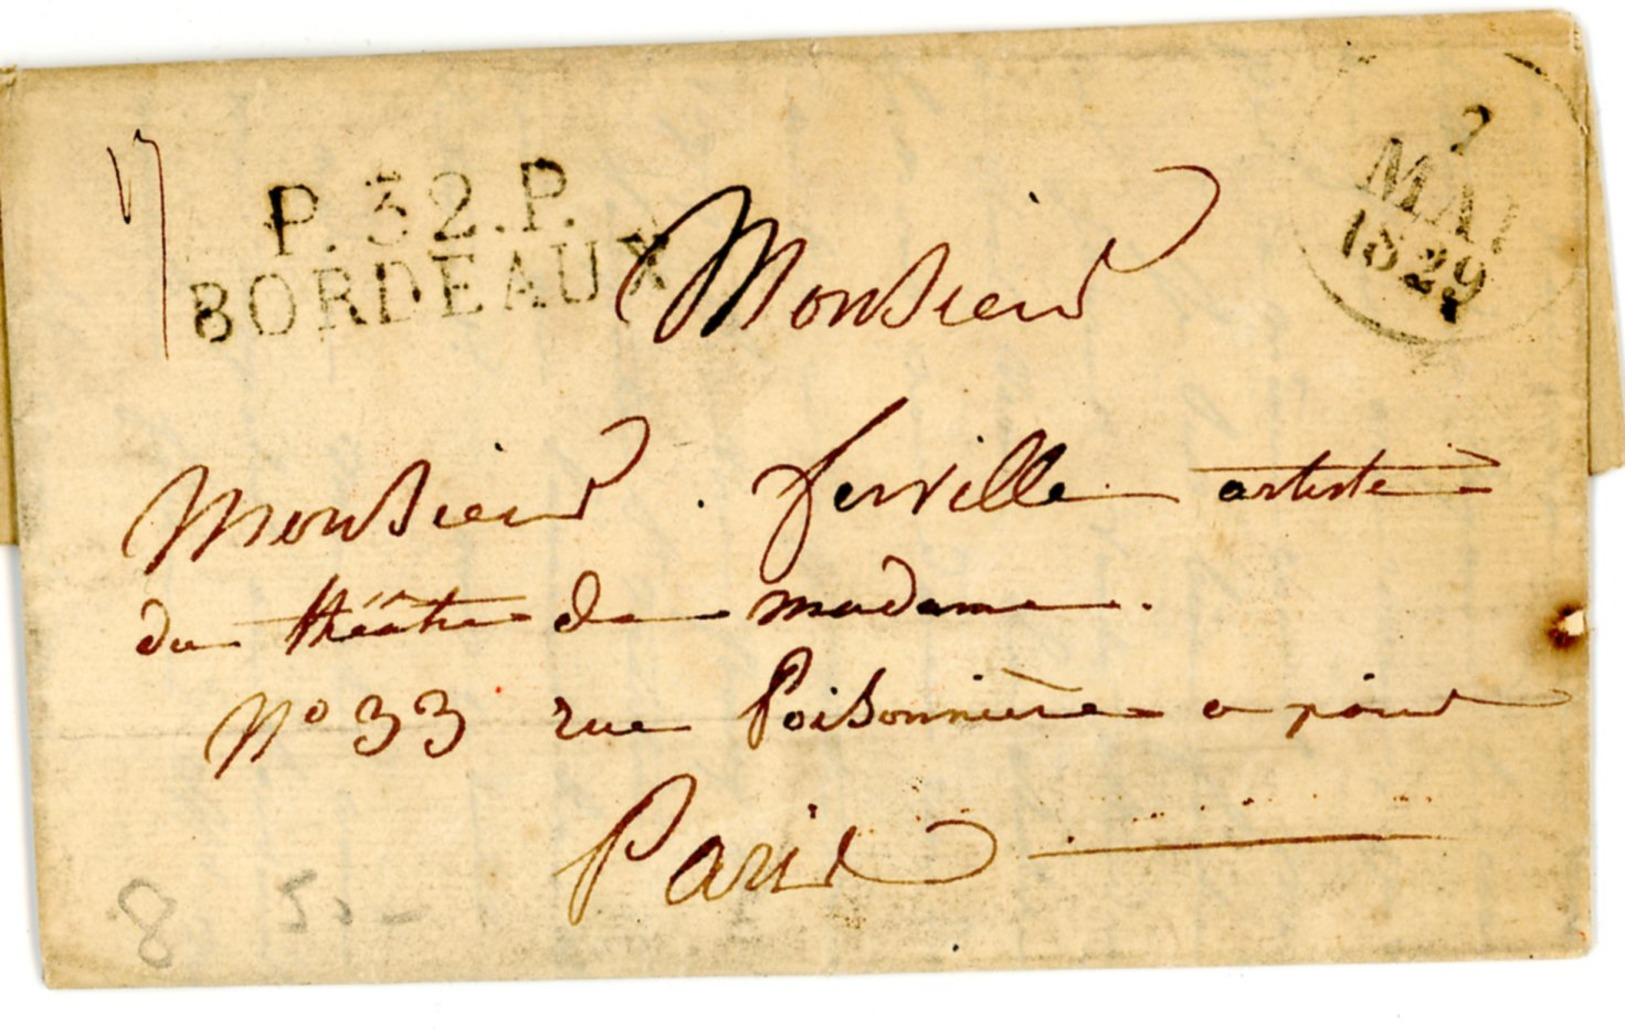 P. 32. P.
BORDEAUX
MAI
1829
Monsieur
Monsieur ferville artiste
du théâtre de madame.
N° 33 rue Poisonnière a
Paris
8 50 -